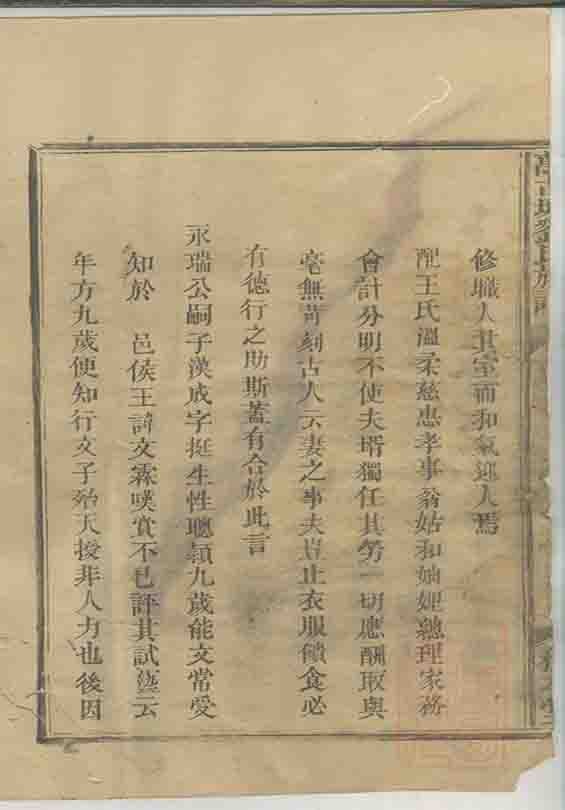 修職人其室而和氣迎人焉
配王氏溫柔慈惠孝事翁姑和妯娌總理家務
會計分明不使夫壻獨任其勞一切應酬取與
毫無苛刻古人云妻之事夫豈止衣服饋食必
有德行之助斯蓋有合於此言
永瑞公嗣子漢成字挺生性聰穎九歲能文常受
知於 邑侯王諱文霖嘆賞不已評其試藝云
年方九歲便知行文子殆天授非人力也後因